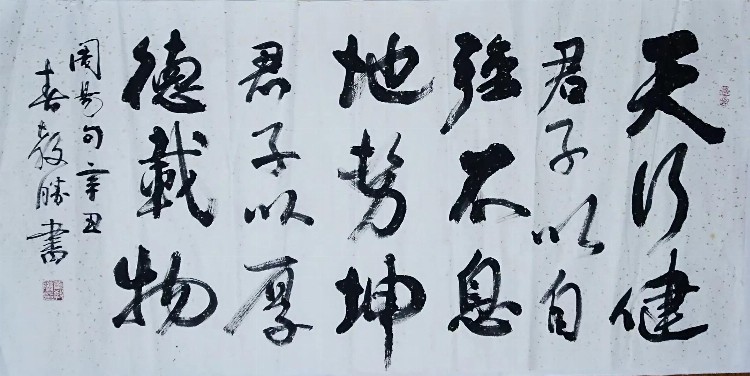 天行健
君子以自
强不息
地势坤
君子以厚
德載物
周易句辛丑
春毅勝書